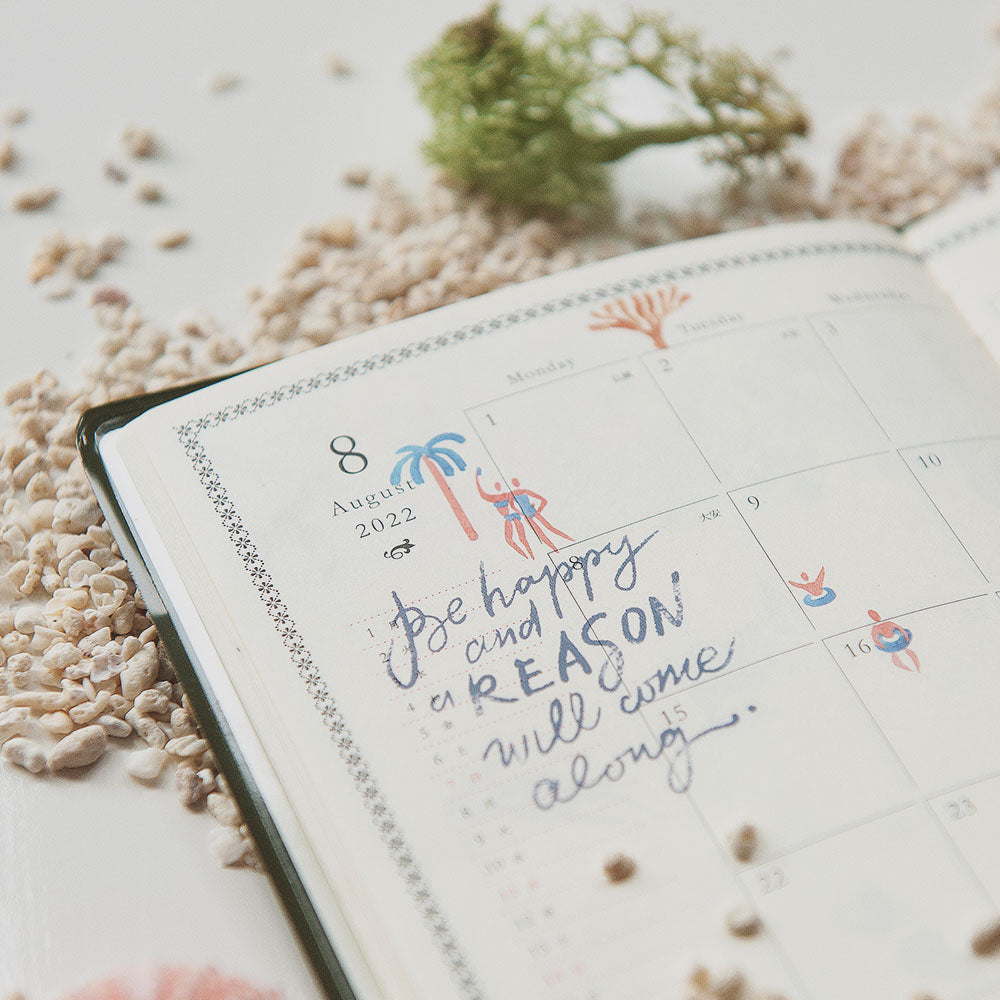 8
August
2022
Monday
Tuesday
Wednesday
1
2
3
8
大安
9
10
15
16
22
23
Be happy
and
a REASON
will come
along.
1
4
5
6
7
8
9
10